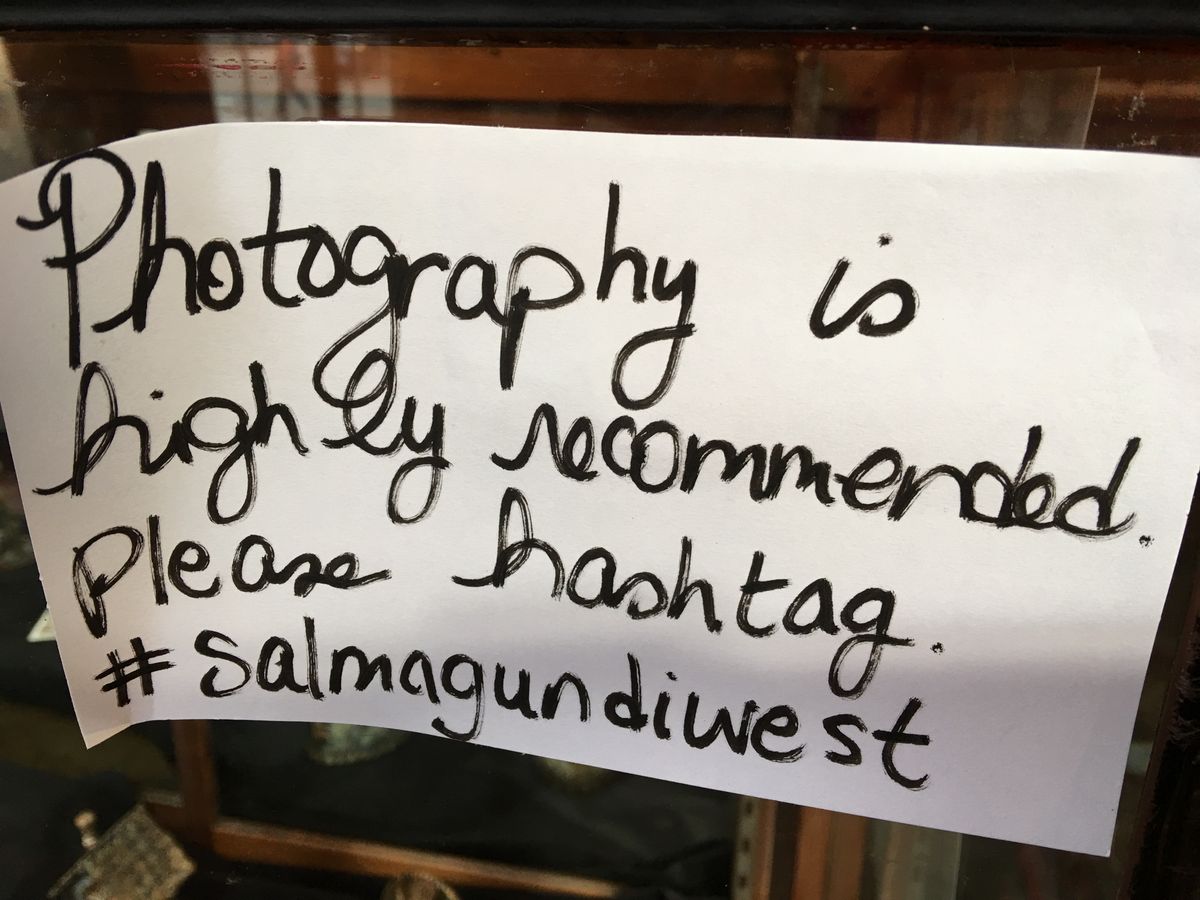 Photography is
highly recommended.
Please hashtag.
#salmagundiwest